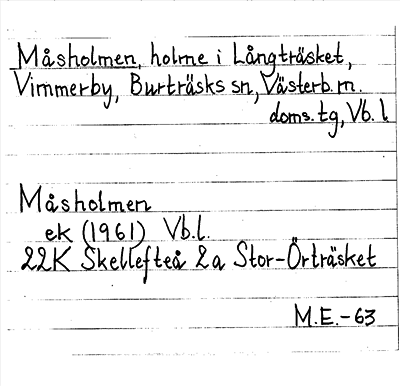 Måsholmen, holme i Långträsket,
Vimmerby, Burträsks sn, Västerb. m.
doms. tg, Vb. l
Måsholmen
ek (1961) Vb. l.
22K Skellefteå 2a Stor-Örträsket
M.E.-63